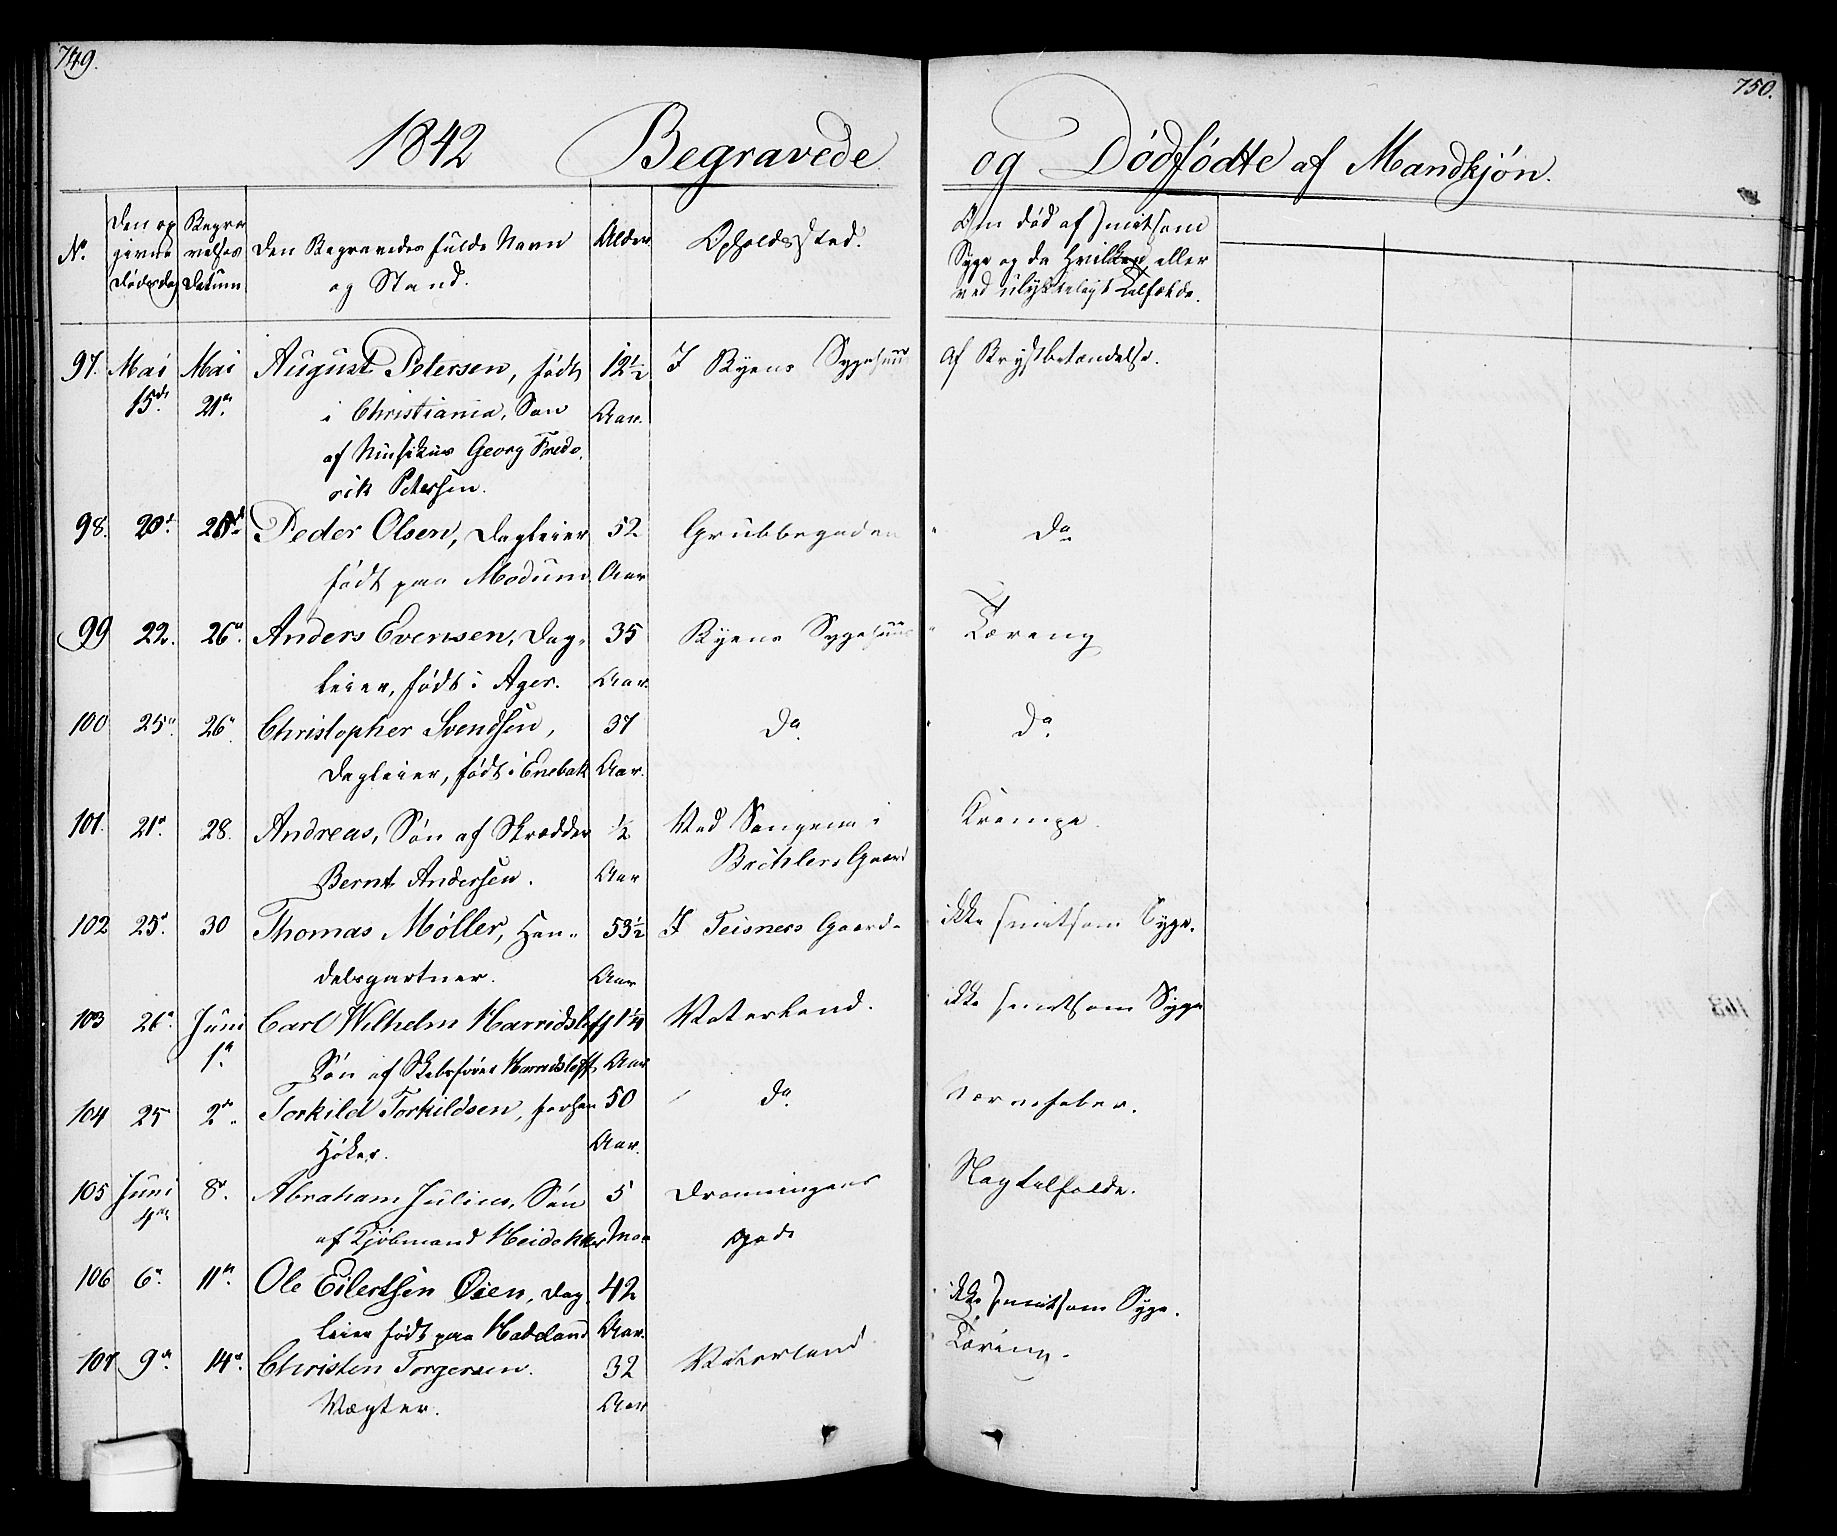 749.
750.
1842 Begravede og Dødfødte af Mandkjøn.
No. Den opgivne Dødsdag Begravelses Datum Den Begravedes fulde Navn og Stand. Alder Opholdssted. Om død af smitsom
Syge og da hvilken eller
ved ulykkeligt Tilfælde.
97. Mai Mai August Petersen, født 12½ I Byens Sygehuus af Brystbetændelse.
15de 21de i Christiania, Søn Aar.
af Musikus Georg Frede-
rik Petersen.
98. 20de Peder Olsen, Dagleier 52 Grubbegaden " Do
født paa Modum Aar
99 22. 26de Anders Evensen, Dag- 35 Byens Sygehuus " Tæring
leier, født i Ager. Aar.
100 25de 26de Christopher Svendsen, 37 Do " Do
Dagleier, født i Enebak Aar.
101. 21de 28. Andreas, Søn af Skrædder ½ Ved i Krampe.
Bernt Andersen. Aar Gaard
102 25de 30 Thomas Møller, Han- 53½ I Teisners Gaard ikke smitsom Syge.
delsgartner. Aar
103 26de Juni Carl Wilhelm Harridsleff 1¼ Vaterland. ikke smitsom Syge
1de Søn af Harridsleff Aar
104 25 2de Torkild Torkildsen, forhen 50 Do Nervefeber.
Høker. Aar.
105 Juni 8de Abraham Julius, Søn 5 Dronningens Slagtilfælde.
4de af Kjøbmand Maa gade
106 6de 11te Ole Eilertsen Øien, Dag- 42 ikke smitsom Syge.
leier født paa Hadeland Aar.
107 9de 14de Christen Torgersen. 32 Vaterland Tæring.
Vægter. Aar